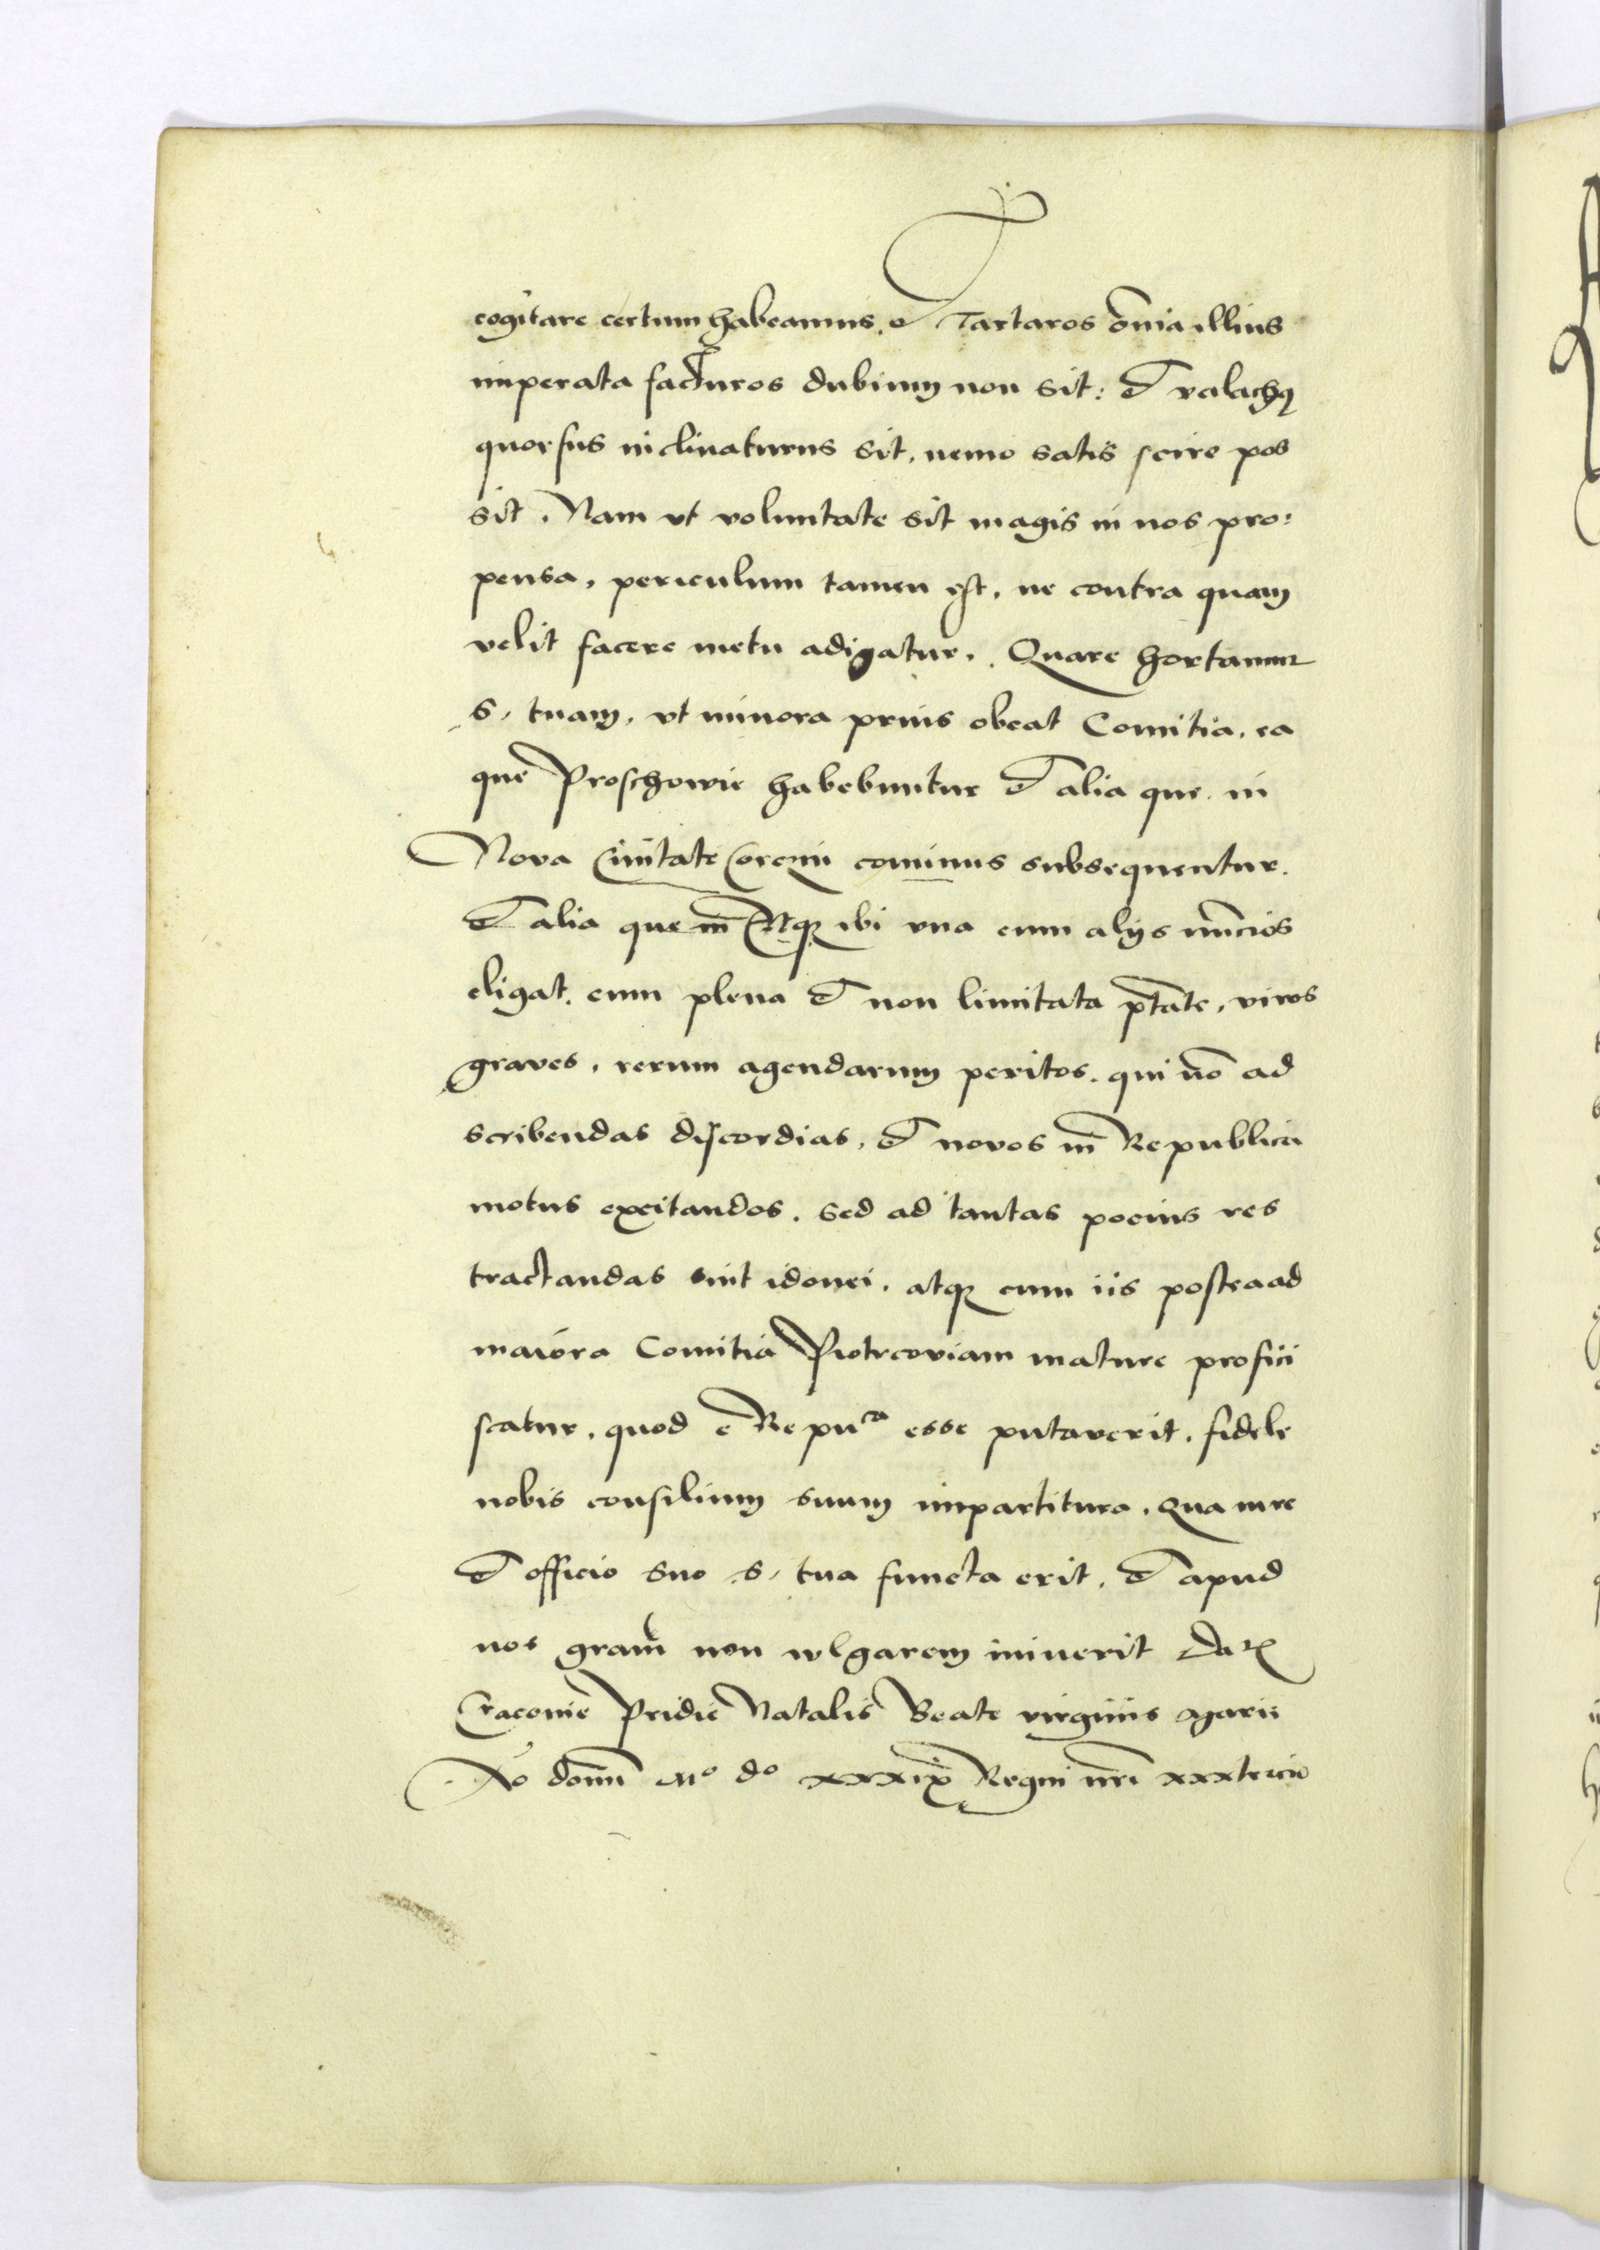 cogitare certum habeamus. et Tartaros õnia illius
imperata facturos dubium non sit: et valachq
quorsus inclinaturus sit, nemo satis scire pos
sit. Nam ut voluntate sit magis in nos pro:
pensa, periculum tamen est, ne contra quam
velit facere metu adigatur. Quare hortamur
S. tuam, ut minora prius obeat Comitia, ea
que Proschowie habebuntur et alia que in
Nova Civitate Corczin cominus subsequentur.
et alia que in Atque ibi una cum alijs nũcios
eligat. cum plena et non limitata ptãte, viros
graves, rerum agendarum peritos. qui nõ ad
scribendas discordias, et novos in Republica
motus excitandos. sed ad tantas pocius res
tractandas sint idonei. atque cum iis postea ad
maiora Comitia Piotrcoviam mature profici
scatur, quod e Repuca esse putaverit, fidele
nobis consilium suum impartitura. Qua in re
et officio suo S. tua functa erit, et apud
nos gram̃ non vulgarem iniverit Dat
Cracovie Pridie Natalis Beate virginis Marii
Ao domi Mo do xxxix Regni nri xxxtercio